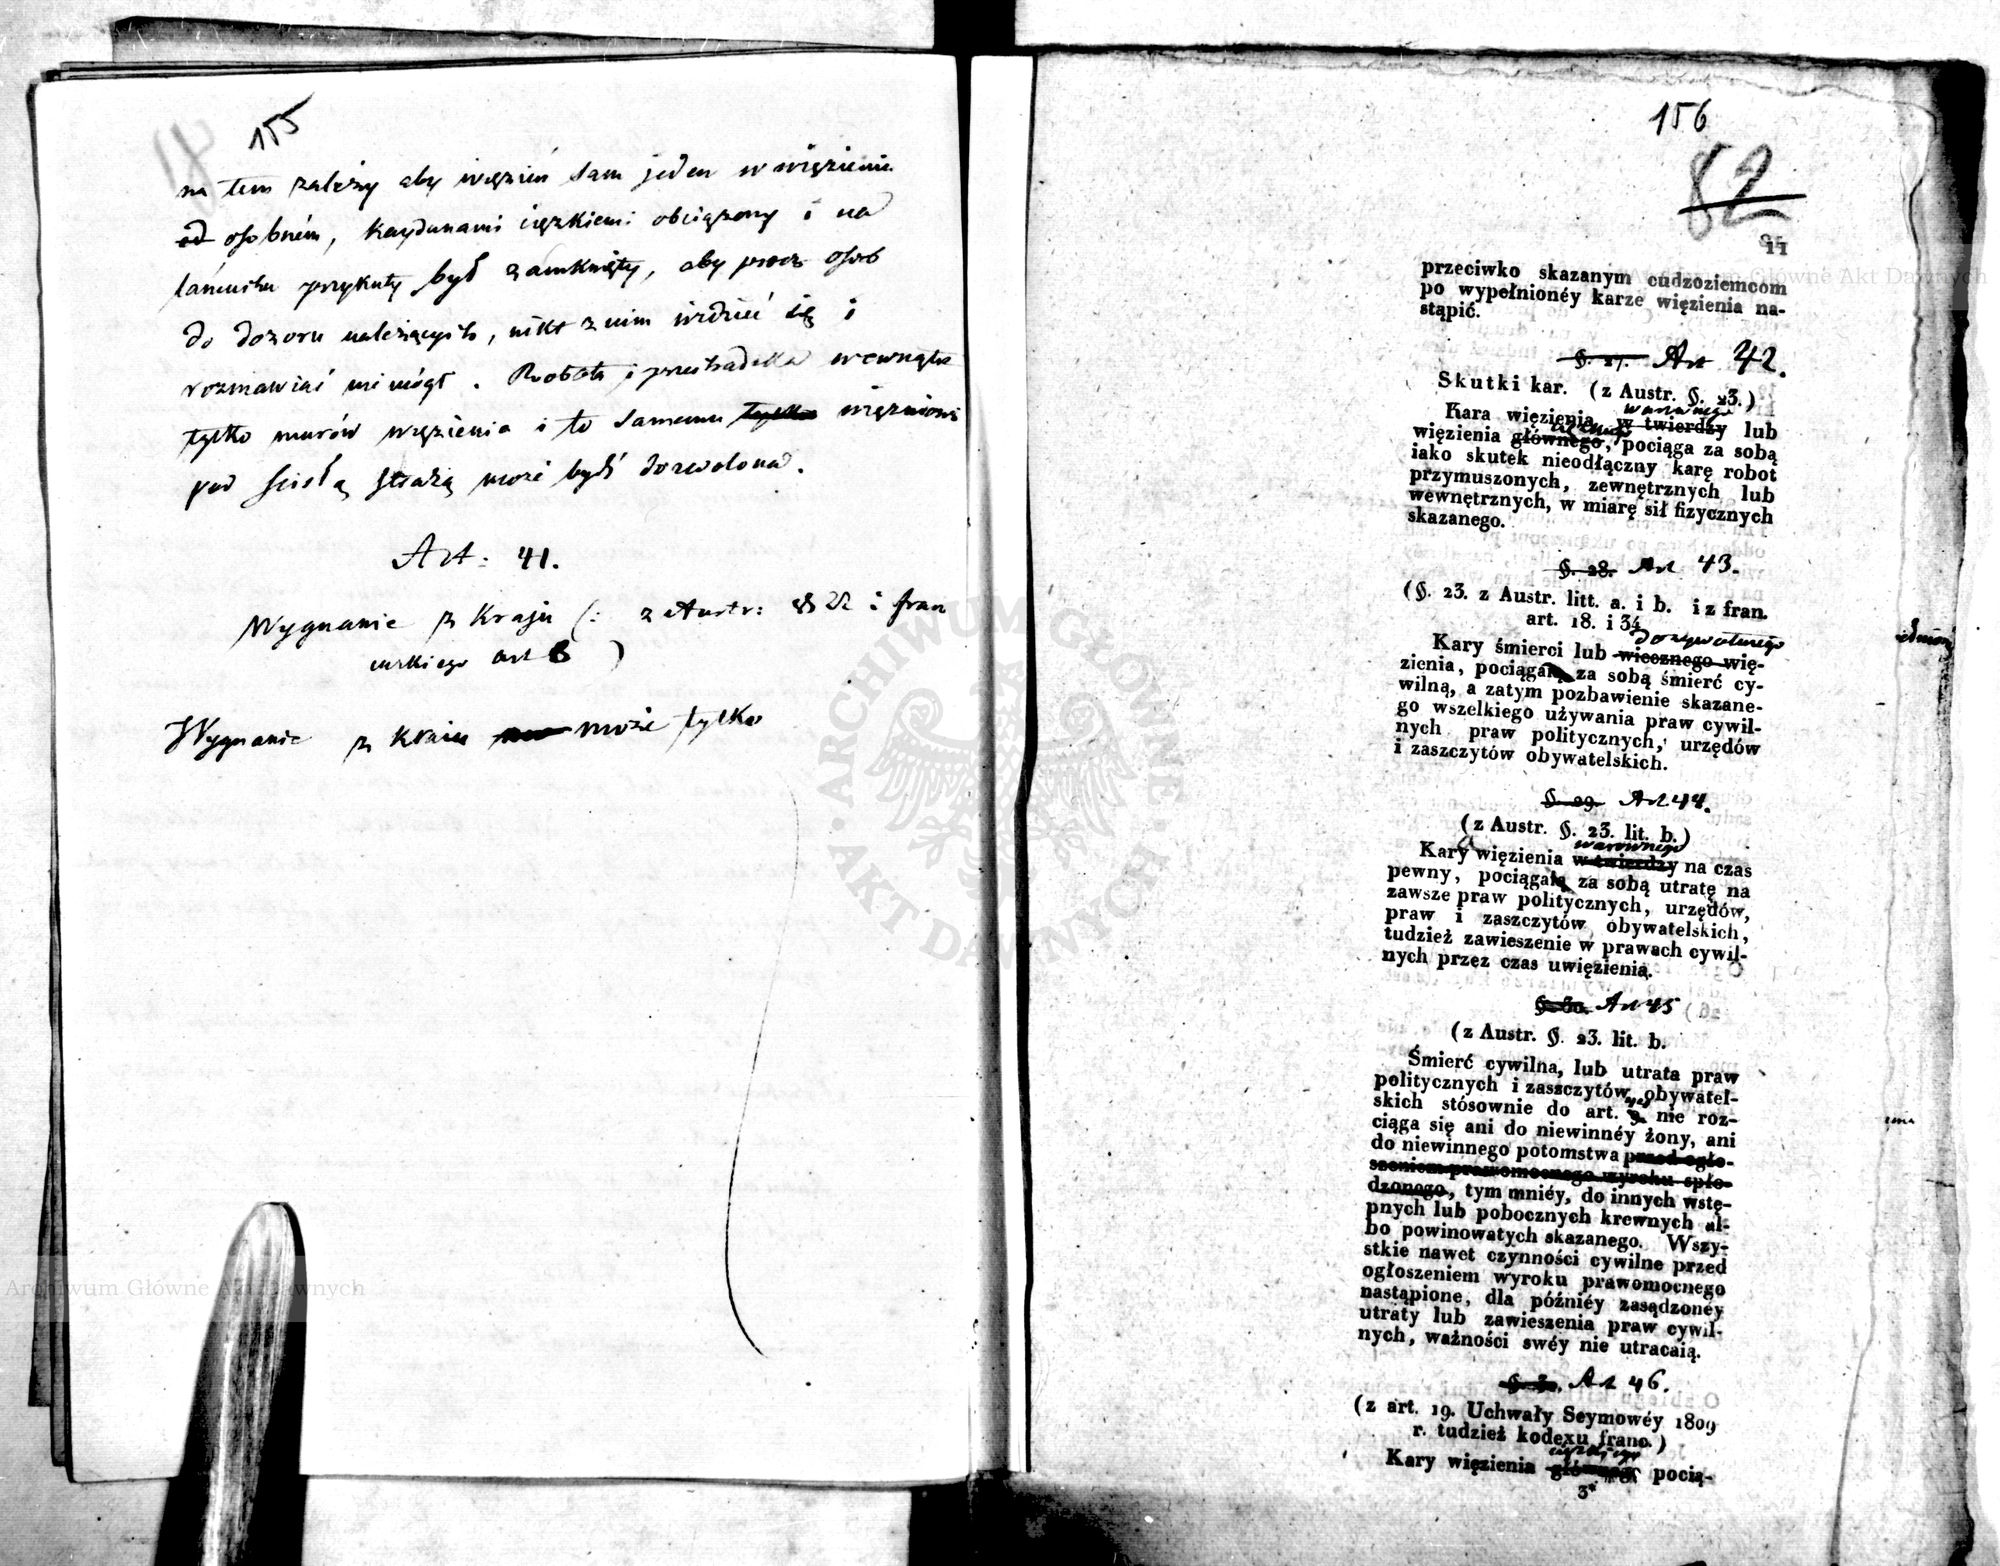 155
na tem zależy aby więzień sam jeden w więzieniu
od osobném, kaydanami ciężkiemi obciążony i na
łańcuchu przykuty był zamknięty, aby procz osob
do dozoru należących, nikt z nim widzieć się i
rozmawiać nie mógł. Robota i przechadzka wewnątrz
tylko murów więzienia i to samemu tylko więźniowi
pod ścisłą strażą może być dozwolona.
Art: 41.
Wygnanie z Kraju (: z Austr: § 22 i fran
cuzkiego art 8 )
Wygnanie z Kraiu może tylko
156
82
11
przeciwko skazanym cudzoziemcom
po wypełnionéy karze więzienia na-
stąpić.
§. 27. Art 42.
Skutki kar. (z Austr. §. 23.)
warownego
Kara więzienia w twierdzy lub
ciężkiego
więzienia głównego, pociąga za sobą
iako skutek nieodłączny karę robot
przymuszonych, zewnętrznych lub
wewnętrznych, w miarę sił fizycznych
skazanego.
§. 28. Art 43.
(§. 23. z Austr. litt. a. i b. i z fran.
art. 18. i 34
dożywotniego
Kary śmierci lub wiecznego wię-
zienia, pociągaią za sobą śmierć cy-
wilną, a zatym pozbawienie skazane-
go wszelkiego używania praw cywil-
nych praw politycznych, urzędów
i zaszczytów obywatelskich.
§. 29. Art 44.
(z Austr. §. 23. lit. b.)
a warownego
Kary więzienia w twierdzy na czas
pewny, pociągaią za sobą utratę na
zawsze praw politycznych, urzędów,
praw i zaszczytów obywatelskich,
tudzież zawieszenie w prawach cywil-
nych przez czas uwięzienia.
§. 30. Art 45
(z Austr. §. 23. lit. b.
Śmierć cywilna, lub utrata praw
politycznych i zaszczytów obywatel-
skich stósownie do art. 9. nie roz-
ciąga się ani do niewinnéy żony, ani
do niewinnego potomstwa przed ogło-
szeniem prawomocnego wyroku spło-
dzonego, tym mniéy, do innych wstę-
pnych lub pobocznych krewnych al-
bo powinowatych skazanego. Wszy-
stkie nawet czynności cywilne przed
ogłoszeniem wyroku prawomocnego
nastąpione, dla późniéy zasądzonéy
utraty lub zawieszenia praw cywil-
nych, ważności swéy nie utracaią.
Art 46.
(z art. 19. Uchwały Seymowéy 1809
r. tudzież kodexu franc.)
ciężkiego
Kary więzienia głównego pocią-
3*
ARCHIWUM GŁÓWNE AKT DAWNYCH
Archiwum Główne Akt Dawnych
Archiwum Główne Akt Dawnych